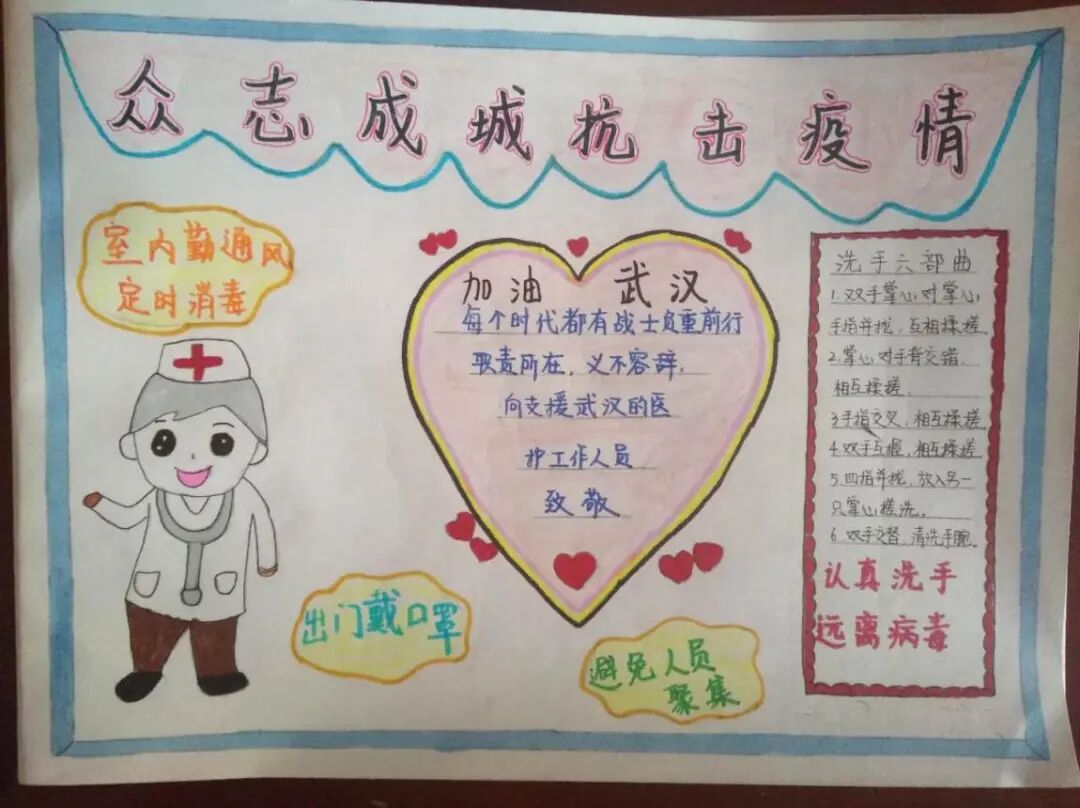 众志成城抗击疫情
室内勤通风
定时消毒
加油 武汉
每个时代都有战士负重前行
职责所在，义不容辞，
向支援武汉的医
护工作人员
致敬
出门戴口罩
避免人员
聚集
洗手六部曲
1.双手掌心对掌心，
手指并拢，互相揉搓
2.掌心对手背交错，
相互揉搓，
3.手指交叉，相互揉搓
4.双手互握，相互揉搓
5.四指并拢，放入另一
只掌心搓洗。
6.双手交替，清洗手腕。
认真洗手
远离病毒